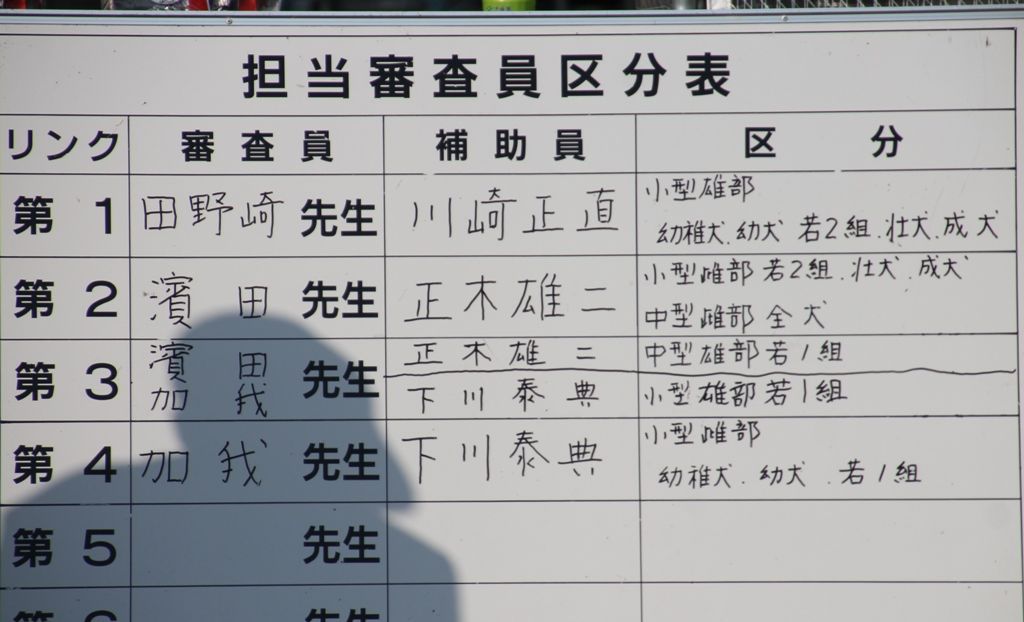 担当審査員区分表
リンク 審査員 補助員 区分
第1 田野崎 先生 川崎正直 小型雄部
幼稚犬.幼犬 若2組.壮犬.成犬
第2 濱田 先生 正木雄二 小型雌部 若2組.壮犬.成犬
中型雌部 全犬
第3 濱田 先生 正木雄二 中型雄部若1組
加我 下川泰典 小型雄部若1組
第4 加我 先生 下川泰典 小型雌部
幼稚犬.幼犬.若1組
第5 先生